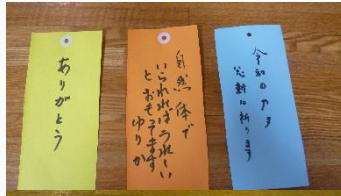 ありがとう
自然体で
いられればうれしい
とおもってます
ゆりか
令和の
に祈ります